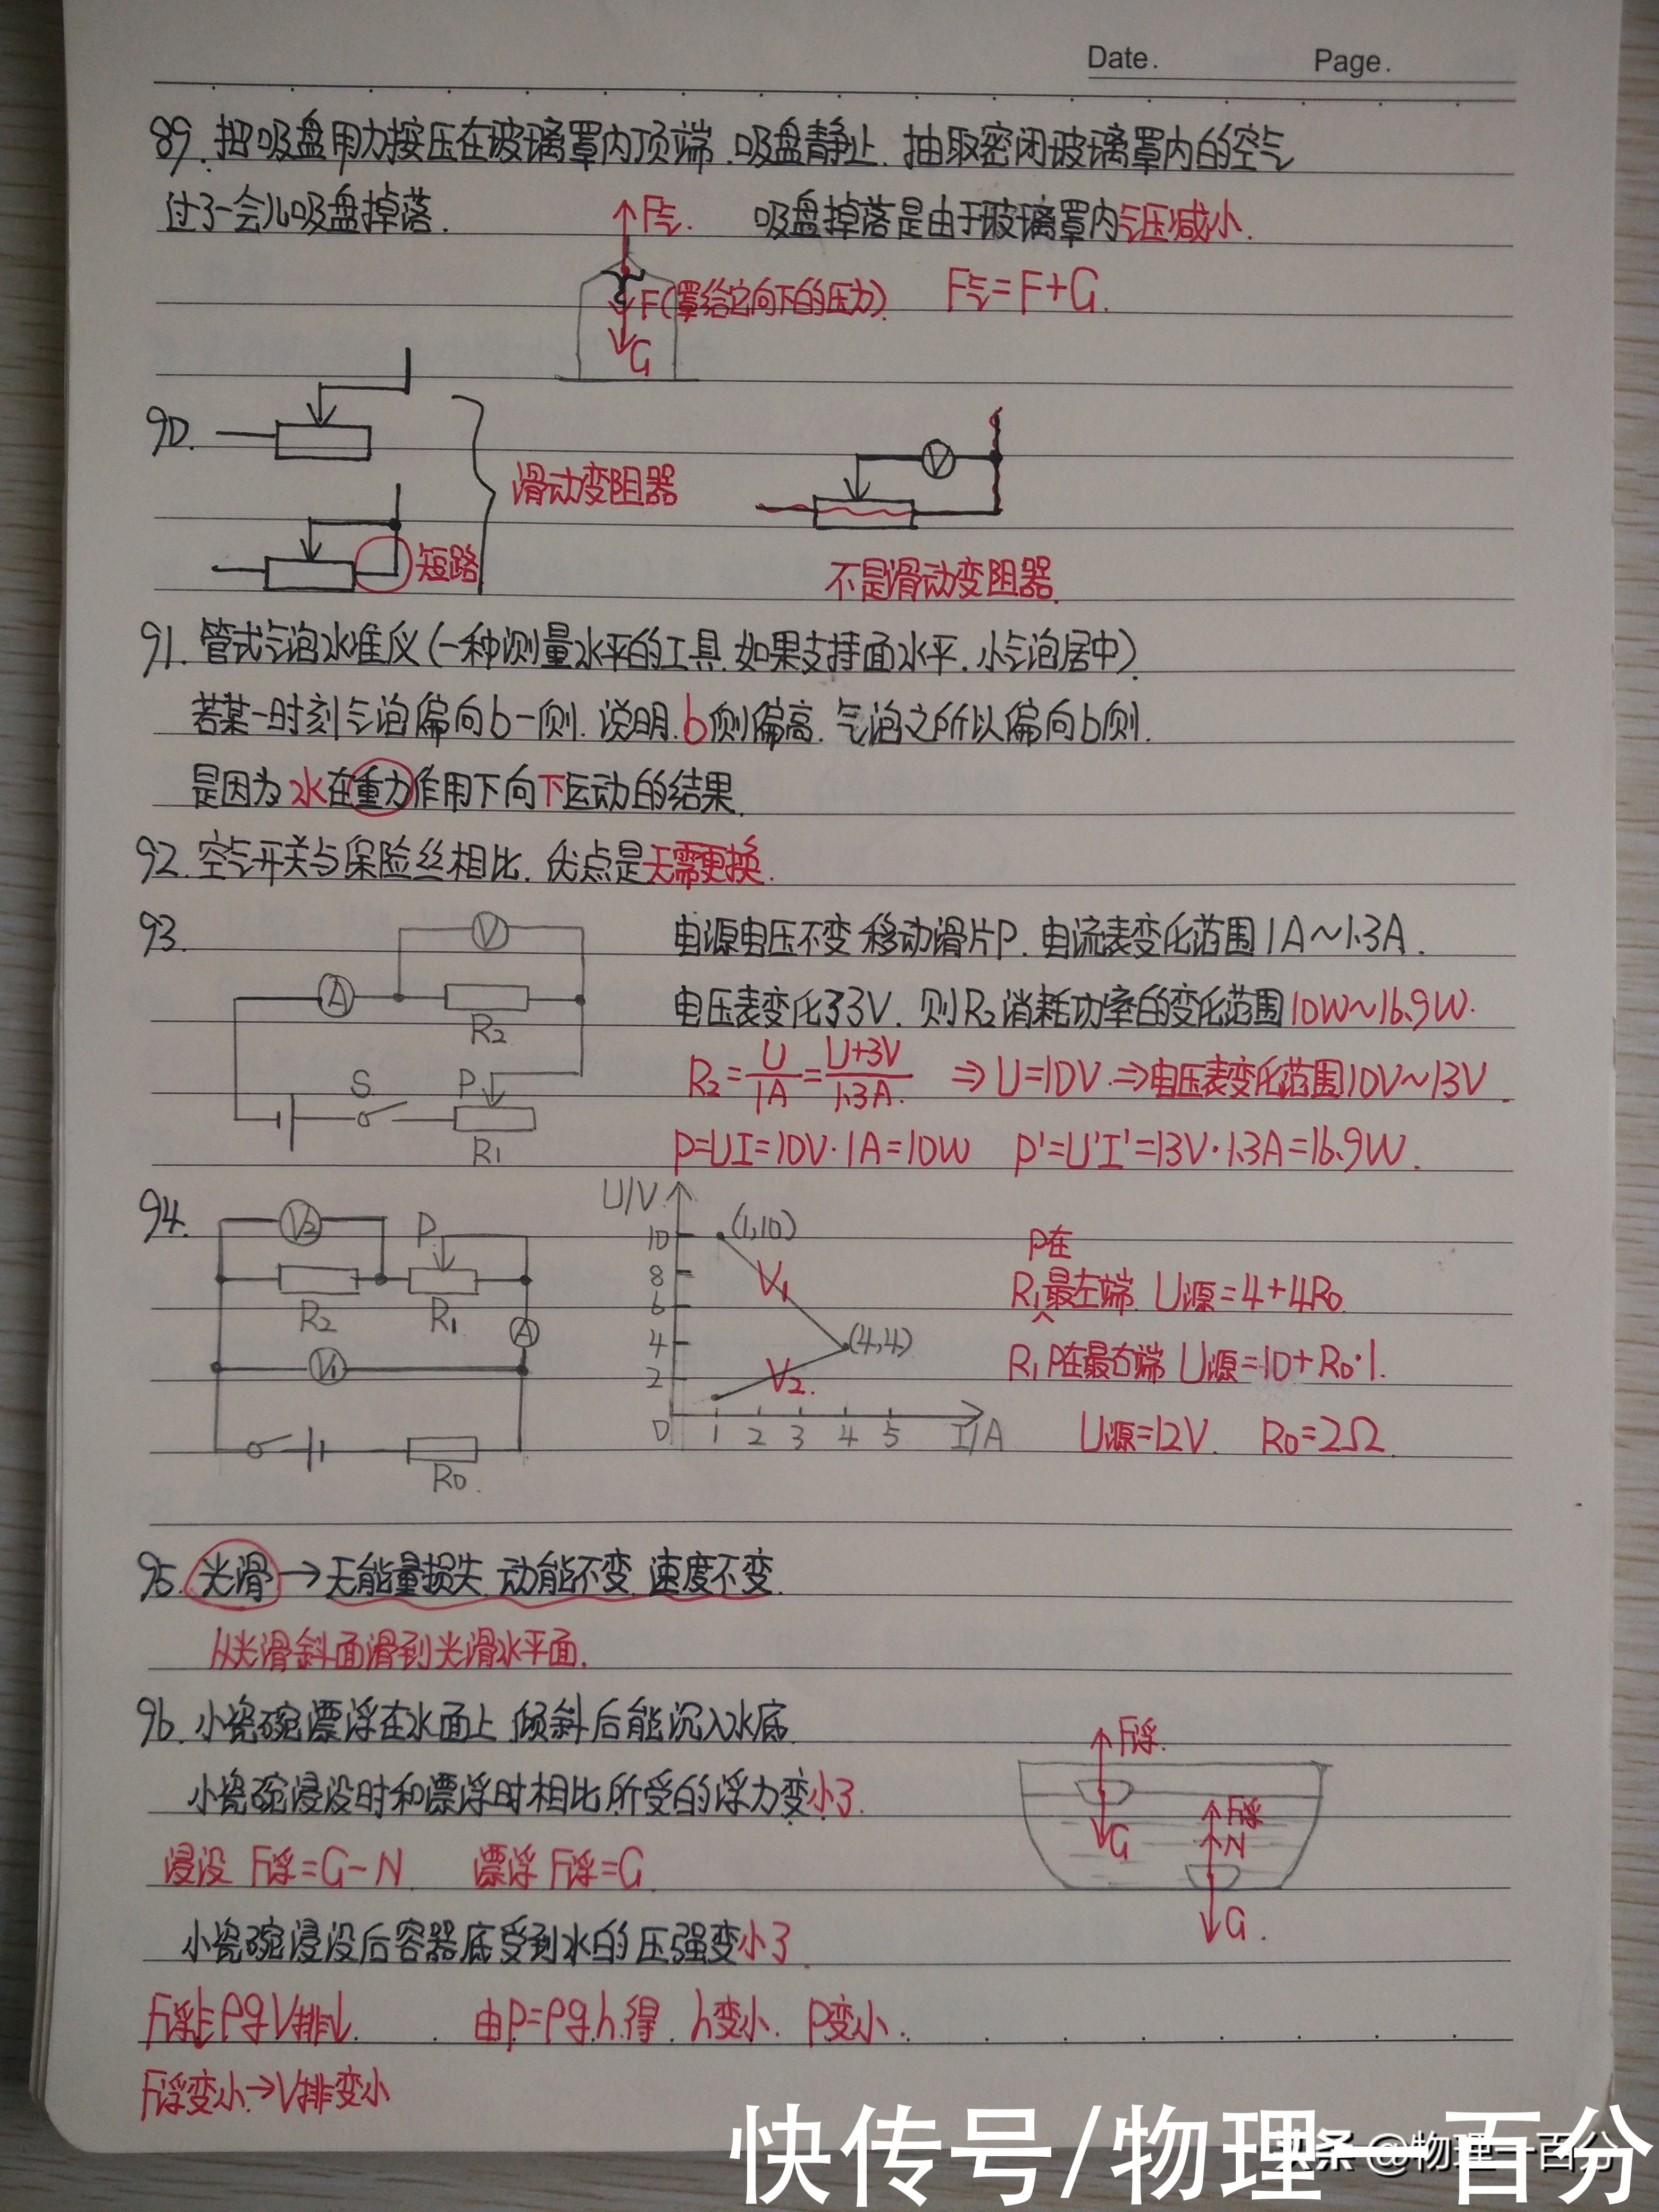 Date. Page.
89. 把吸盘用力按压在玻璃罩内顶端.吸盘静止.抽取密闭玻璃罩内的空气
过了一会儿吸盘掉落. F气. 吸盘掉落是由于玻璃罩内气压减小.
F(罩给它向下的压力) F气=F+G.
G
90.
滑动变阻器 V
短路 不是滑动变阻器.
91. 管式气泡水准仪(一种测量水平的工具.如果支持面水平.小气泡居中)
若某一时刻气泡偏向b一侧.说明.b侧偏高.气泡之所以偏向b侧.
是因为水在重力作用下向下运动的结果.
92. 空气开关与保险丝相比.优点是无需更换.
93. V 电源电压不变 移动滑片P.电流表变化范围1A~1.3A.
A R2 电压表变化了3V.则R2消耗功率的变化范围10W~16.9W.
S P R1 R2=U/1A=U+3V/1.3A. ⇒U=10V.⇒电压表变化范围10V~13V.
P=UI=10V·1A=10W P'=U'I'=13V·1.3A=16.9W.
94. V2 P U/V 10 (1,10) P在
R2 R1 8 6 V1 R1最左端 U源=4+4R0
A 4 (4,4)
V1 2 V2. R1P在最右端 U源=10+R0·1.
0 1 2 3 4 5 I/A U源=12V. R0=2Ω.
R0.
95. 光滑→无能量损失 动能不变 速度不变.
从光滑斜面滑到光滑水平面.
96. 小瓷碗漂浮在水面上 倾斜后能沉入水底. F浮.
小瓷碗浸没时和漂浮时相比 所受的浮力变小了. G F浮 N
浸没 F浮=G-N 漂浮 F浮=G. G.
小瓷碗浸没后容器底受到水的压强变小了.
F浮=ρgV排↓. 由P=ρgh.得.h变小.P变小.
F浮变小→V排变小
快传号/物理一百分
头条 @物理一百分